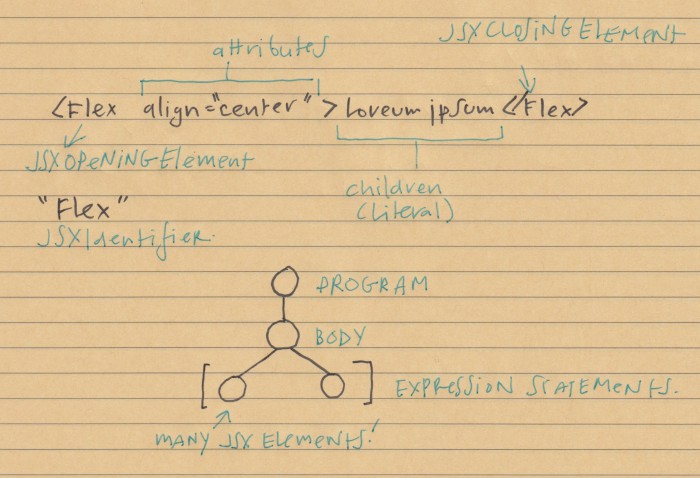 attributes
JSXCLOSINGELEMENT
<Flex align="center" > Loreum ipsum </Flex>
JSXOPENINGElement
children
(Literal)
"Flex"
JSXIdentifier.
PROGRAM
BODY
[ ] EXPRESSION STATEMENTS.
MANY JSX Elements!